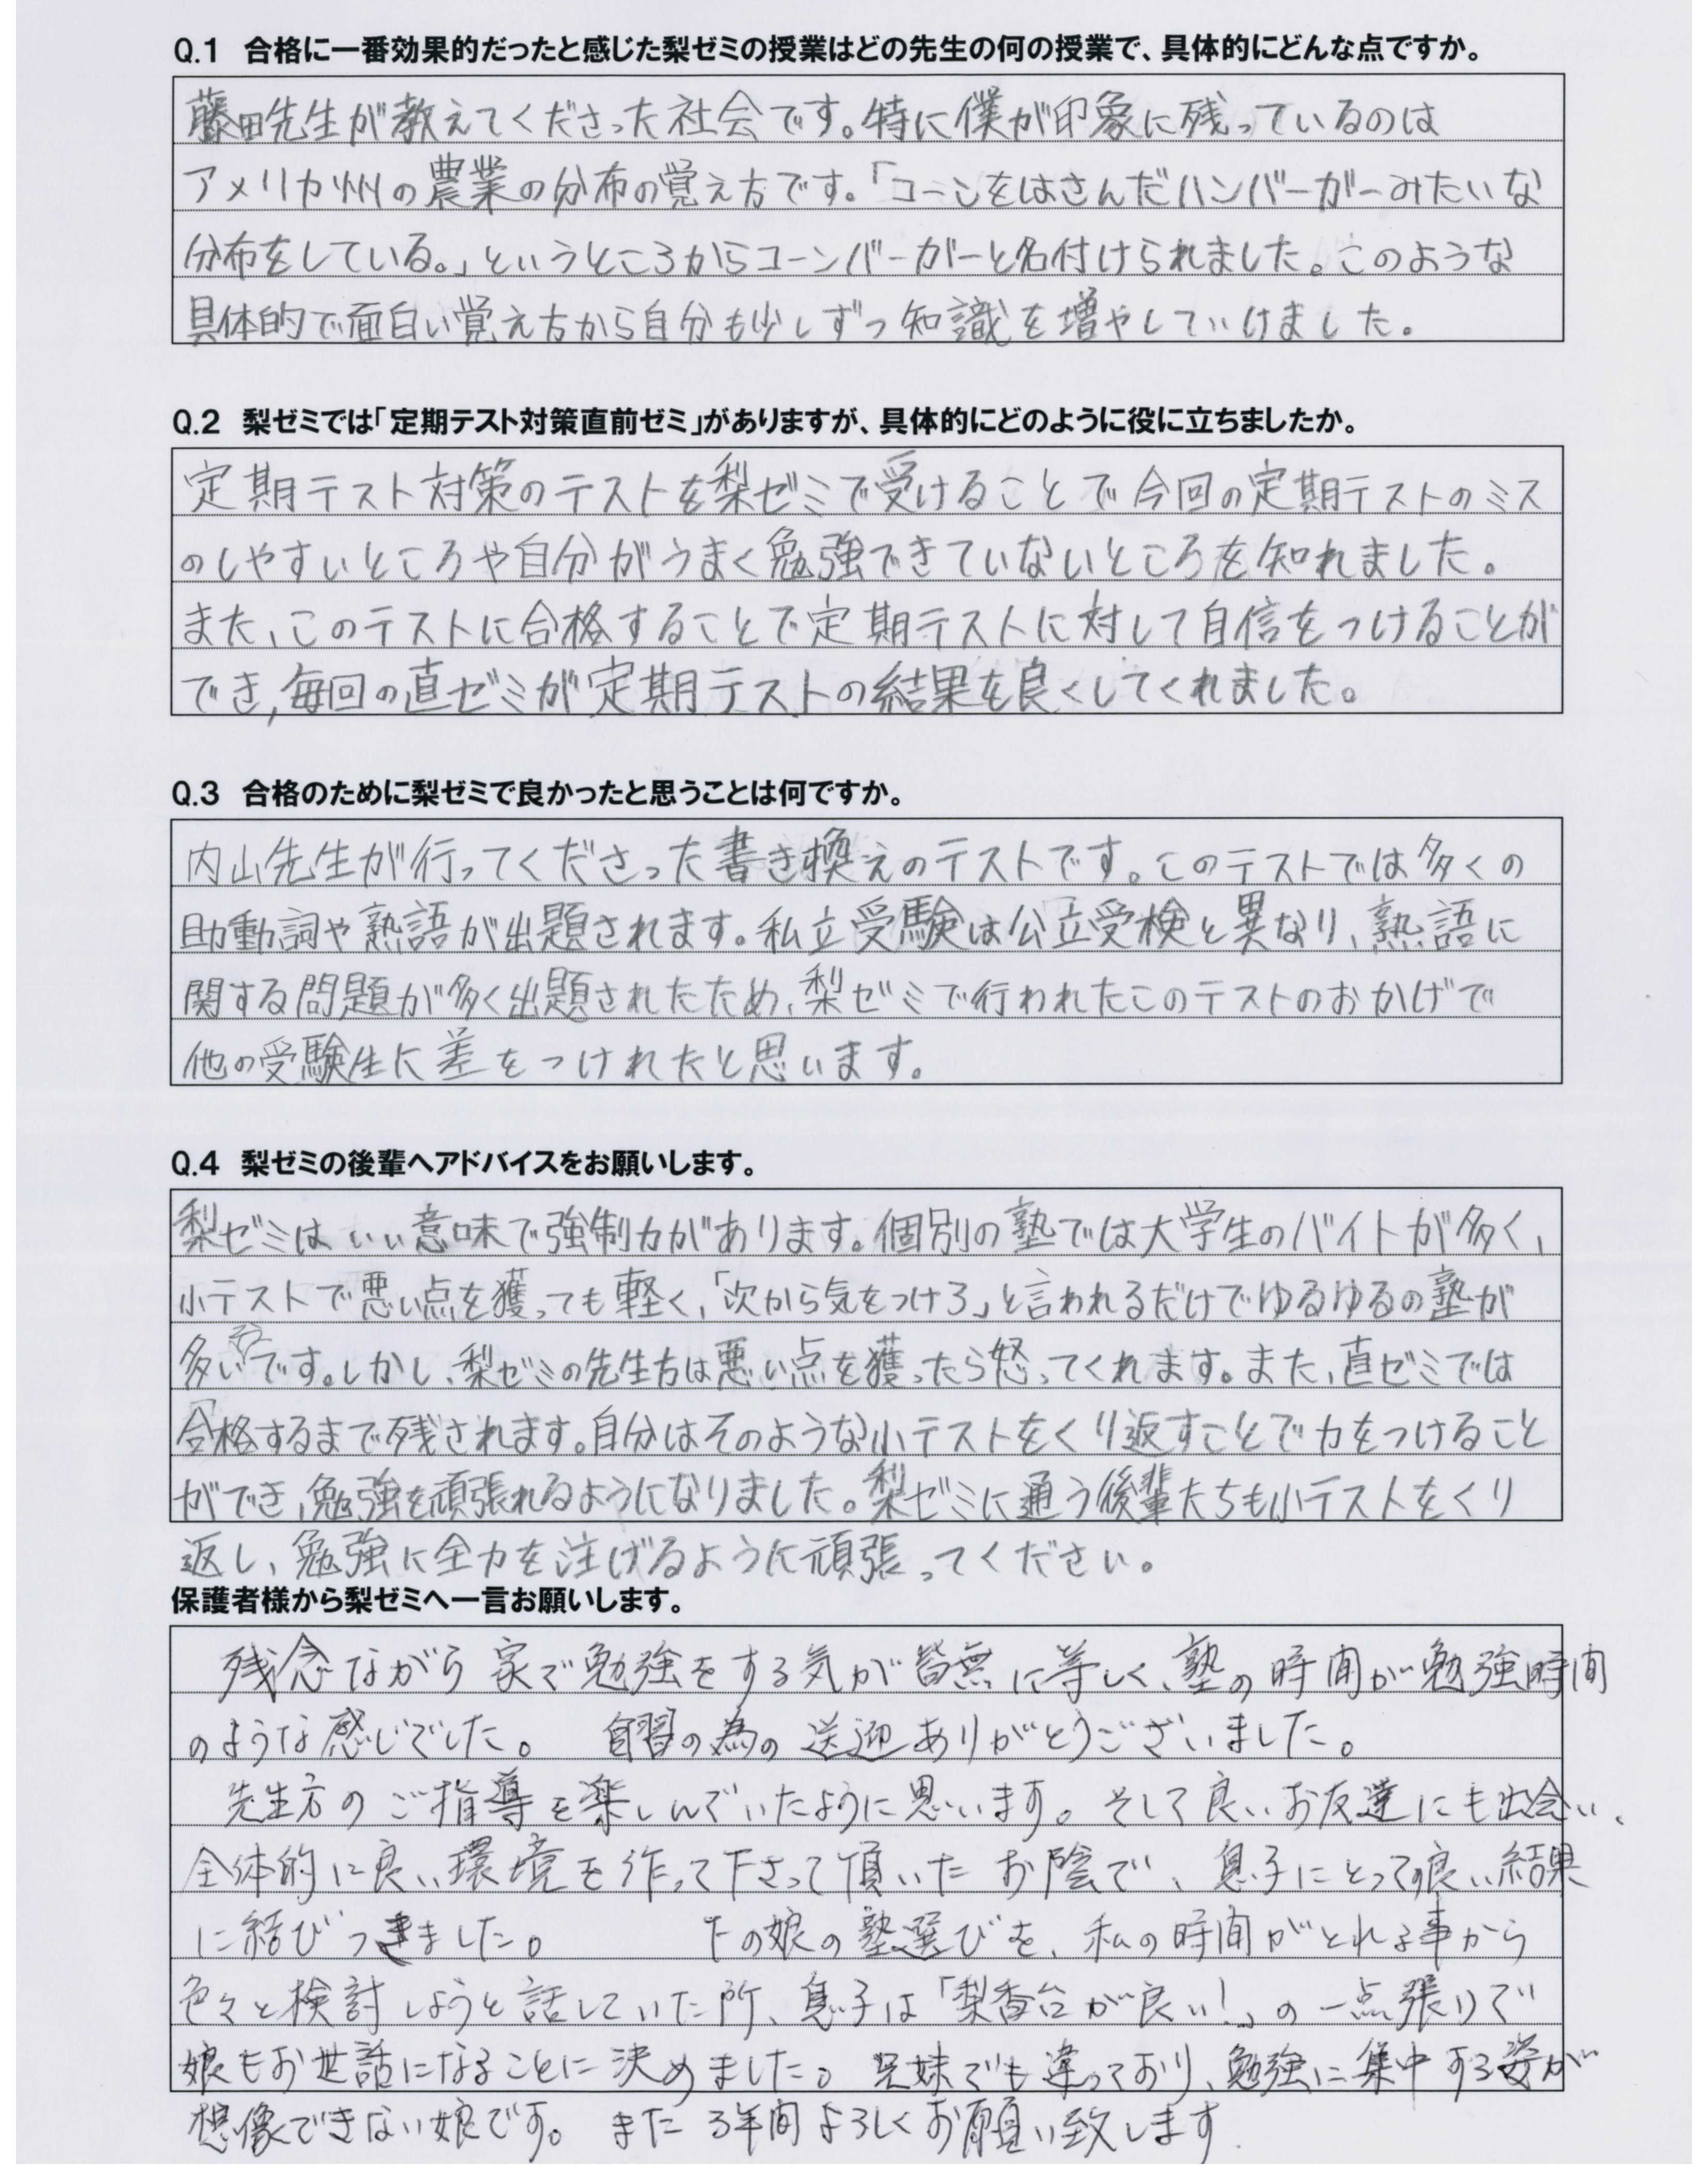 Q.1 合格に一番効果的だったと感じた梨ゼミの授業はどの先生の何の授業で、具体的にどんな点ですか。
藤田先生が教えてくださった社会です。特に僕が印象に残っているのは
アメリカ州の農業の分布の覚え方です。「コーンをはさんだハンバーガーみたいな
分布をしている。」というところからコーンバーガーと名付けられました。このような
具体的で面白い覚え方から自分も少しずつ知識を増やしていけました。
Q.2 梨ゼミでは「定期テスト対策直前ゼミ」がありますが、具体的にどのように役に立ちましたか。
定期テスト対策のテストを梨ゼミで受けることで今回の定期テストのミス
のしやすいところや自分がうまく勉強できていないところを知れました。
また、このテストに合格することで定期テストに対して自信をつけることが
でき,毎回の直ゼミが定期テストの結果を良くしてくれました。
Q.3 合格のために梨ゼミで良かったと思うことは何ですか。
内山先生が行ってくださった書き換えのテストです。このテストでは多くの
助動詞や熟語が出題されます。私立受験は公立受検と異なり、熟語に
関する問題が多く出題されたため、梨ゼミで行われたこのテストのおかげで
他の受験生に差をつけれたと思います。
Q.4 梨ゼミの後輩へアドバイスをお願いします。
梨ゼミはいい意味で強制力があります。個別の塾では大学生のバイトが多く、
小テストで悪い点を獲っても軽く、「次から気をつけろ」と言われるだけでゆるゆるの塾が
多いです。しかし、梨ゼミの先生方は悪い点を獲ったら怒ってくれます。また、直ゼミでは
合格するまで残されます。自分はそのような小テストをくり返すことで力をつけること
ができ、勉強を頑張れるようになりました。梨ゼミに通う後輩たちも小テストをくり
返し、勉強に全力を注げるように頑張ってください。
保護者様から梨ゼミへ一言お願いします。
残念ながら家で勉強をする気が皆無に等しく、塾の時間が勉強時間
のような感じでした。 自習の為の送迎ありがとうございました。
先生方のご指導を楽しんでいたように思います。そして良いお友達にも出会い、
全体的に良い環境を作って下さって頂いたお陰で、息子にとっての良い結果
に結びつきました。 下の娘の塾選びを、私の時間がとれる事から
色々と検討しようと話していた所、息子は「梨香台が良い!」の一点張りで
娘もお世話になることに決めました。兄妹でも違っており、勉強に集中する姿が
想像できない娘です。 また3年間よろしくお願い致します